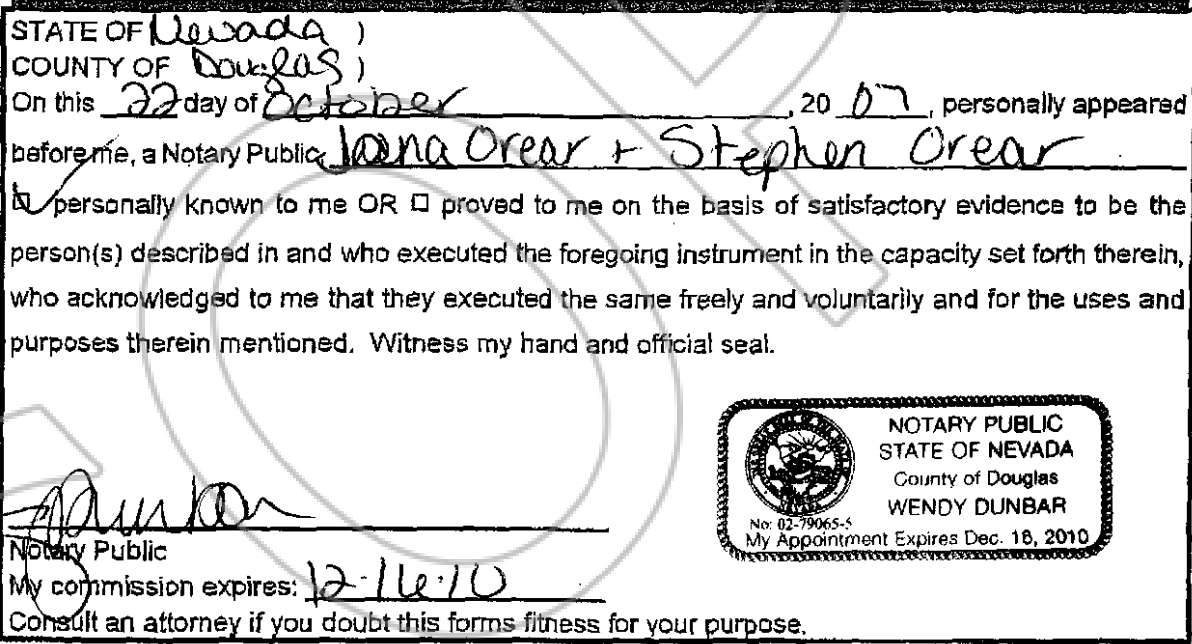 STATE OF Nevada )
COUNTY OF Douglas )
On this 22 day of October, 20 07, personally appeared
before me, a Notary Public, Orear + Stephen Orear
personally known to me OR □ proved to me on the basis of satisfactory evidence to be the
person(s) described in and who executed the foregoing instrument in the capacity set forth therein,
who acknowledged to me that they executed the same freely and voluntarily and for the uses and
purposes therein mentioned. Witness my hand and official seal.
NOTARY PUBLIC
STATE OF NEVADA
County of Douglas
WENDY DUNBAR
No: 02-79065-5
My Appointment Expires Dec. 16, 2010
Notary Public
My commission expires: 12-16-10
Consult an attorney if you doubt this forms fitness for your purpose.